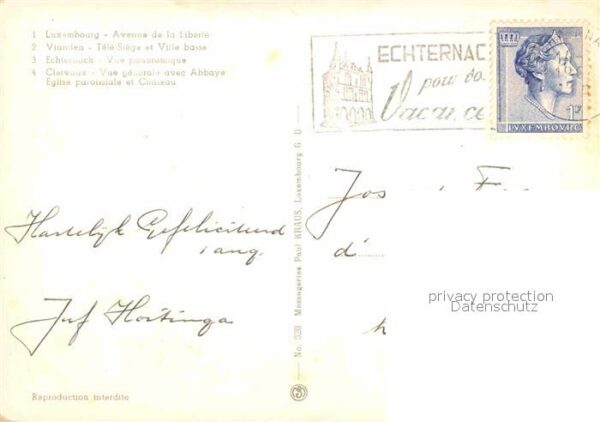 1 Luxembourg - Avenue de la Liberté
2 Vianden - Télé-Siège et Ville basse
3 Echternach - Vue panoramique
4 Clervaux - Vue générale avec Abbaye
Eglise paroissiale et Château
ECHTERNAC
pour vos
Vacance
1F
LUXEMBOURG
Hartelijk Gefeliciteerd
Juf Hoitinga
d'
privacy protection
Datenschutz
No. 328 Messageries Paul KRAUS, Luxembourg G. D.
Reproduction interdite